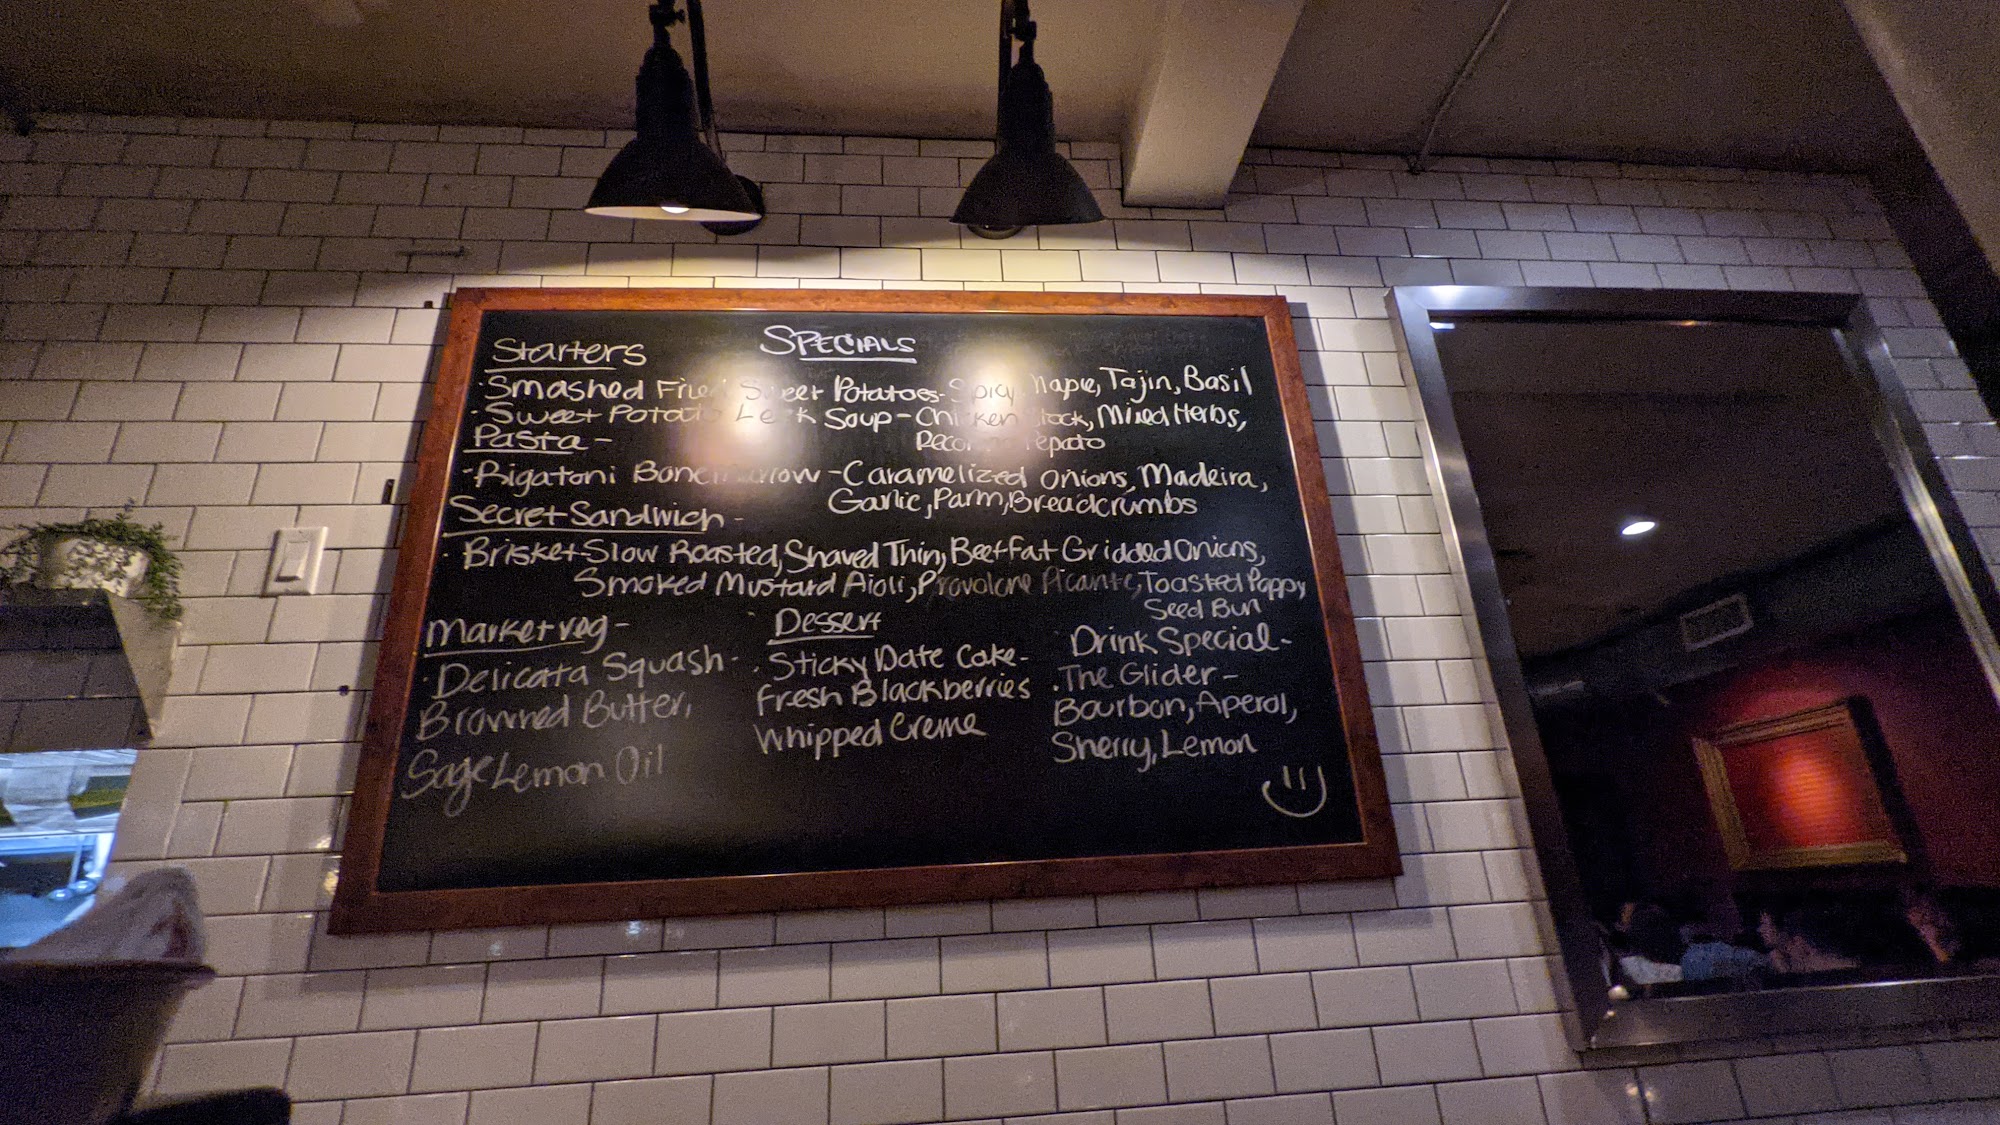 Specials
Starters
· Smashed Fried Sweet Potatoes - Spicy Maple, Tajin, Basil
· Sweet Potato Leek Soup - Chicken Stock, Mixed Herbs,
Pepato
Pasta -
· Rigatoni Bone Marrow - Caramelized Onions, Madeira,
Garlic, Parm, Breadcrumbs
Secret Sandwich -
· Brisket - Slow Roasted, Shaved Thin, Beef Fat Gridded Onions,
Smoked Mustard Aioli, Provolone Picante, Toasted Poppy
Seed Bun
Market veg -
· Delicata Squash -
Browned Butter,
Sage Lemon Oil
Dessert
· Sticky Date Cake -
Fresh Blackberries
Whipped Creme
Drink Special -
· The Glider -
Bourbon, Aperol,
Sherry, Lemon